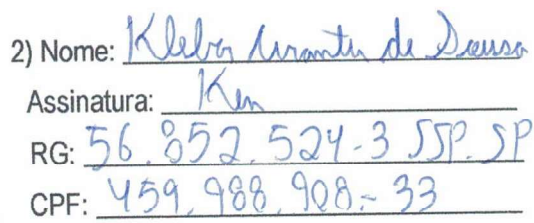 2) Nome: Kleber Arantes de Sousa
Assinatura: Ken
RG: 56.852.524-3 SSP.SP
CPF: 459.988.908-33